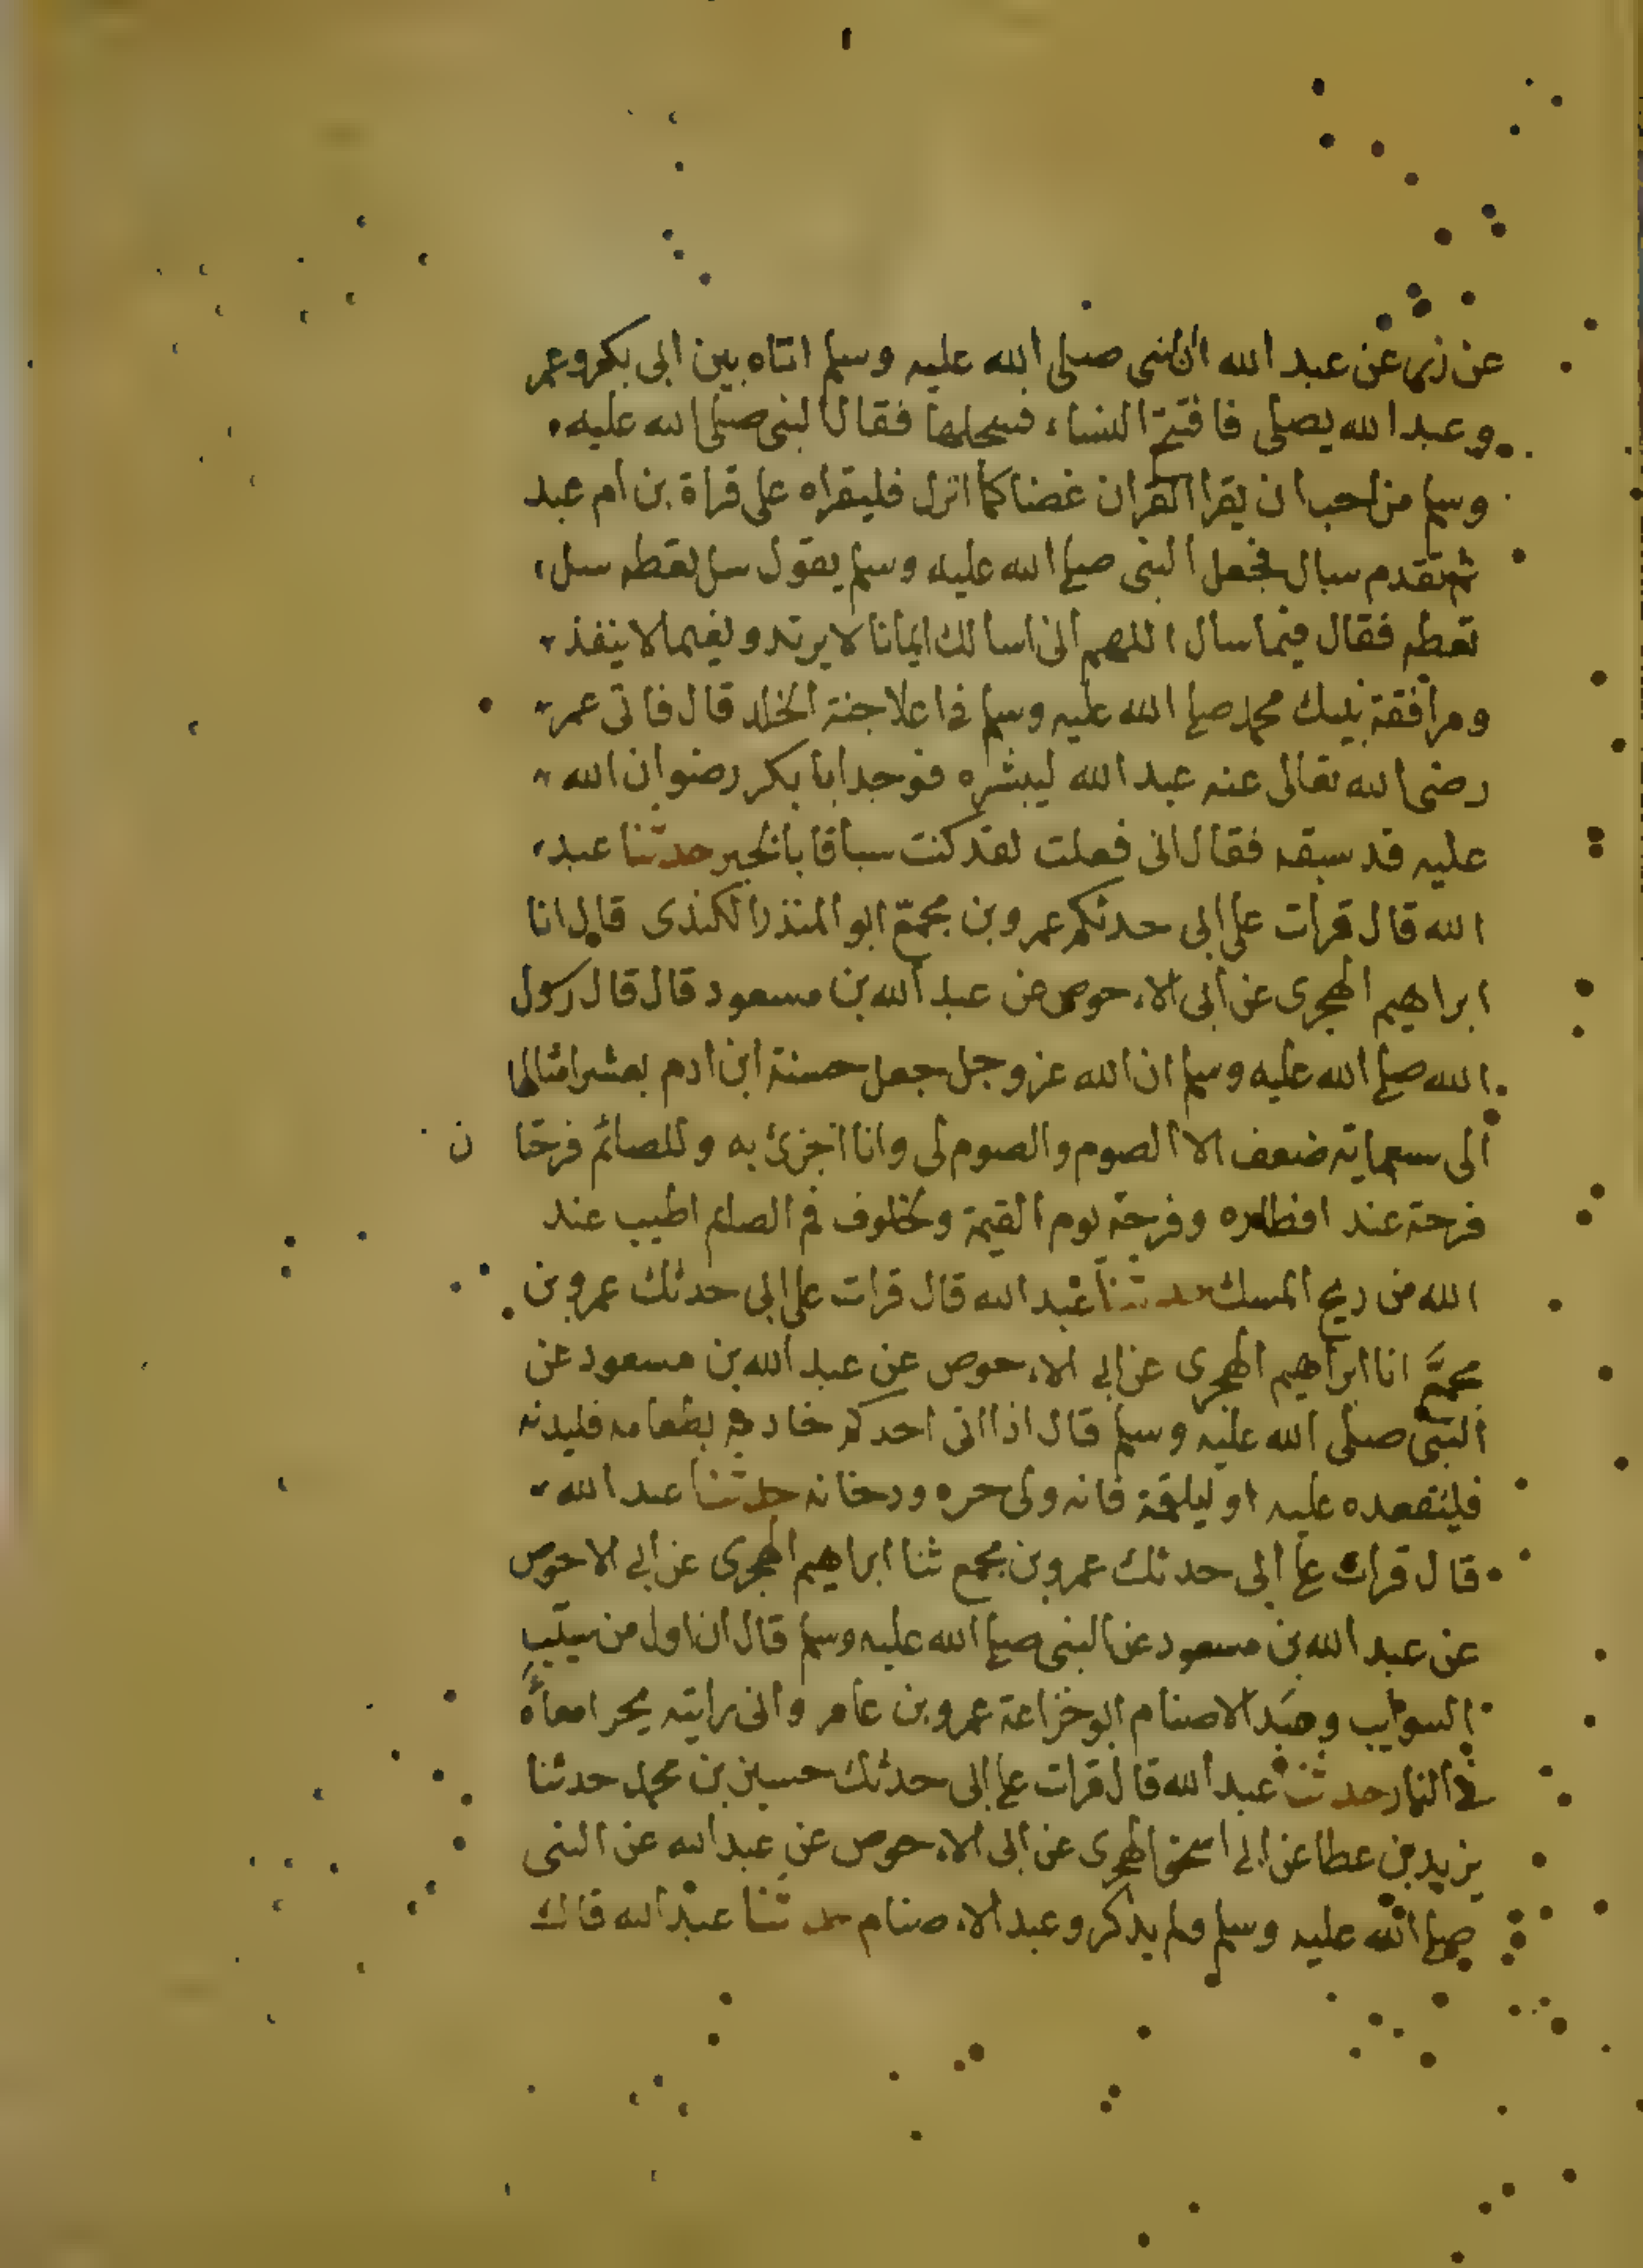 ١
عن زر عن عبد الله ان النبى صلى الله عليه وسلم اتاه بين ابى بكر وعمر
وعبد الله يصلى فافتتح النساء فسحلها فقال النبى صلى الله عليه
وسلم من احب ان يقرا القران غضا كما انزل فليقراه على قراة بن ام عبد
ثم تقدم سال فجعل النبى صلى الله عليه وسلم يقول سل تعطه سل
تعطه فقال فيما سال اللهم انى اسالك ايمانا لا يرتد ونعيما لا ينفذ
ومرافقة نبيك محمد صلى الله عليه وسلم فى اعلا جنة الخلد قال فاتى عمر
رضى الله تعالى عنه عبد الله ليبشره فوجد ابا بكر رضوان الله
عليه قد سبقه فقال انى فعلت لقد كنت سباقا بالخير حدثنا عبد
الله قال قرات على ابى حدثكم عمرو بن مجمع ابو المنذر الكندى قال انا
ابراهيم الهجرى عن ابى الاحوص عن عبد الله بن مسعود قال قال رسول
الله صلى الله عليه وسلم ان الله عز وجل جعل حسنة ابن ادم بعشر امثالها
الى سبعماية ضعف الا الصوم والصوم لى وانا اجزئ به وللصائم فرحتا ن
فرحة عند افطاره وفرحة يوم القيمة ولخلوف فم الصائم اطيب عند
الله من ريح المسك حدثنا عبد الله قال قرات على ابى حدثك عمرو بن
مجمع انا ابراهيم الهجرى عن ابى الاحوص عن عبد الله بن مسعود عن
النبى صلى الله عليه وسلم قال اذا اتى احدكم خادمه بطعامه فليدنه
فليقعده عليه او ليلقمة فانه ولى حره ودخانه حدثنا عبد الله
قال قرات على ابى حدثك عمرو بن مجمع ثنا ابراهيم الهجرى عن ابى الاحوص
عن عبد الله بن مسعود عن النبى صلى الله عليه وسلم قال ان اول من سيّب
السوايب وعبد الاصنام ابو خزاعة عمرو بن عامر وانى رايته يجر امعاءه
فى النار حدثنا عبد الله قال قرات على ابى حدثك حسين بن محمد حدثنا
يزيد بن عطا عن ابى اسحق الهجرى عن ابى الاحوص عن عبد الله عن النبى
صلى الله عليه وسلم ولم يذكر وعبد الاصنام حدثنا عبد الله قال